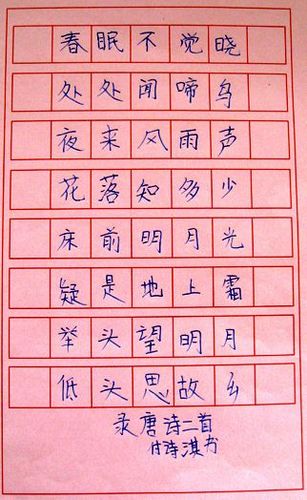 春眠不觉晓
处处闻啼鸟
夜来风雨声
花落知多少
床前明月光
疑是地上霜
举头望明月
低头思故乡
录唐诗二首
付诗淇书